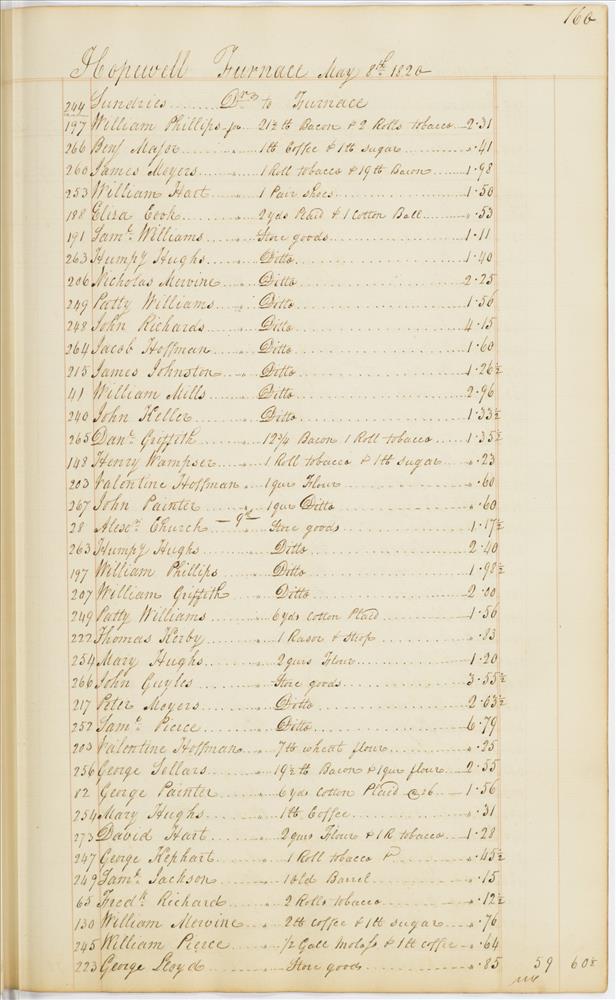 160
Hopewell Furnace May 8th 1820
244 Sundries Drs to Furnace
197 William Phillips for 21½ lb Bacon & 2 Rolls tobacco 2.31
266 Benj Major " 1 lb Coffee & 1 lb sugar .41
260 James Meyers " 1 Roll tobacco & 19 lb Bacon 1.98
253 William Hart " 1 Pair shoes 1.50
188 Eliza Cook " 2 yds Plaid & 1 Cotton Ball .53
191 Saml. Williams " Store goods 1.11
263 Humpy Hughs " Ditto 1.40
206 Nicholas Mervine " Ditto 2.25
249 Patty Williams " Ditto 1.56
248 John Richards " Ditto 4.15
264 Jacob Hoffman " Ditto 1.60
215 James Johnston " Ditto 1.26½
41 William Mills " Ditto 2.96
240 John Keller " Ditto 1.33½
265 Danl. Griffith " 12¾ Bacon 1 Roll tobacco 1.35½
148 Henry Wampser " 1 Roll tobacco & 1 lb sugar .23
203 Valentine Hoffman " 1 qur Flour .60
267 John Painter " 1 qur Ditto .60
— 9th —
28 Alexr. Church " Store goods 1.17½
263 Humpy Hughs " Ditto 2.40
197 William Phillips " Ditto 1.98½
207 William Griffith " Ditto 2.00
249 Patty Williams " 6 yds Cotton Plaid 1.56
222 Thomas Kirby " 1 Rasor & Strop .83
254 Mary Hughs " 2 qurs Flour 1.20
266 John Guyles " Store goods 3.55½
217 Peter Moyers " Ditto 2.63½
252 Saml. Pierce " Ditto 6.79
203 Valentine Hoffman " 7 lb wheat flour .25
256 George Sellars " 19½ lb Bacon & 1 qur flour 2.55
82 George Painter " 6 yds Cotton Plaid @ 26 1.56
254 Mary Hughs " 1 lb Coffee .31
273 David Hart " 2 qurs Flour & 1 R tobacco 1.28
247 George Kephart " 1 Roll tobacco & .45½
249 Saml. Jackson " 1 old Barrel .15
65 Fredk Richard " 2 Rolls tobacco .12½
130 William Mervine " 2 lb Coffee & 1 lb sugar .76
245 William Pierce " ½ Gall Molass & 1 lb coffee .64
223 George Lloyd " Store goods .85 59 60½